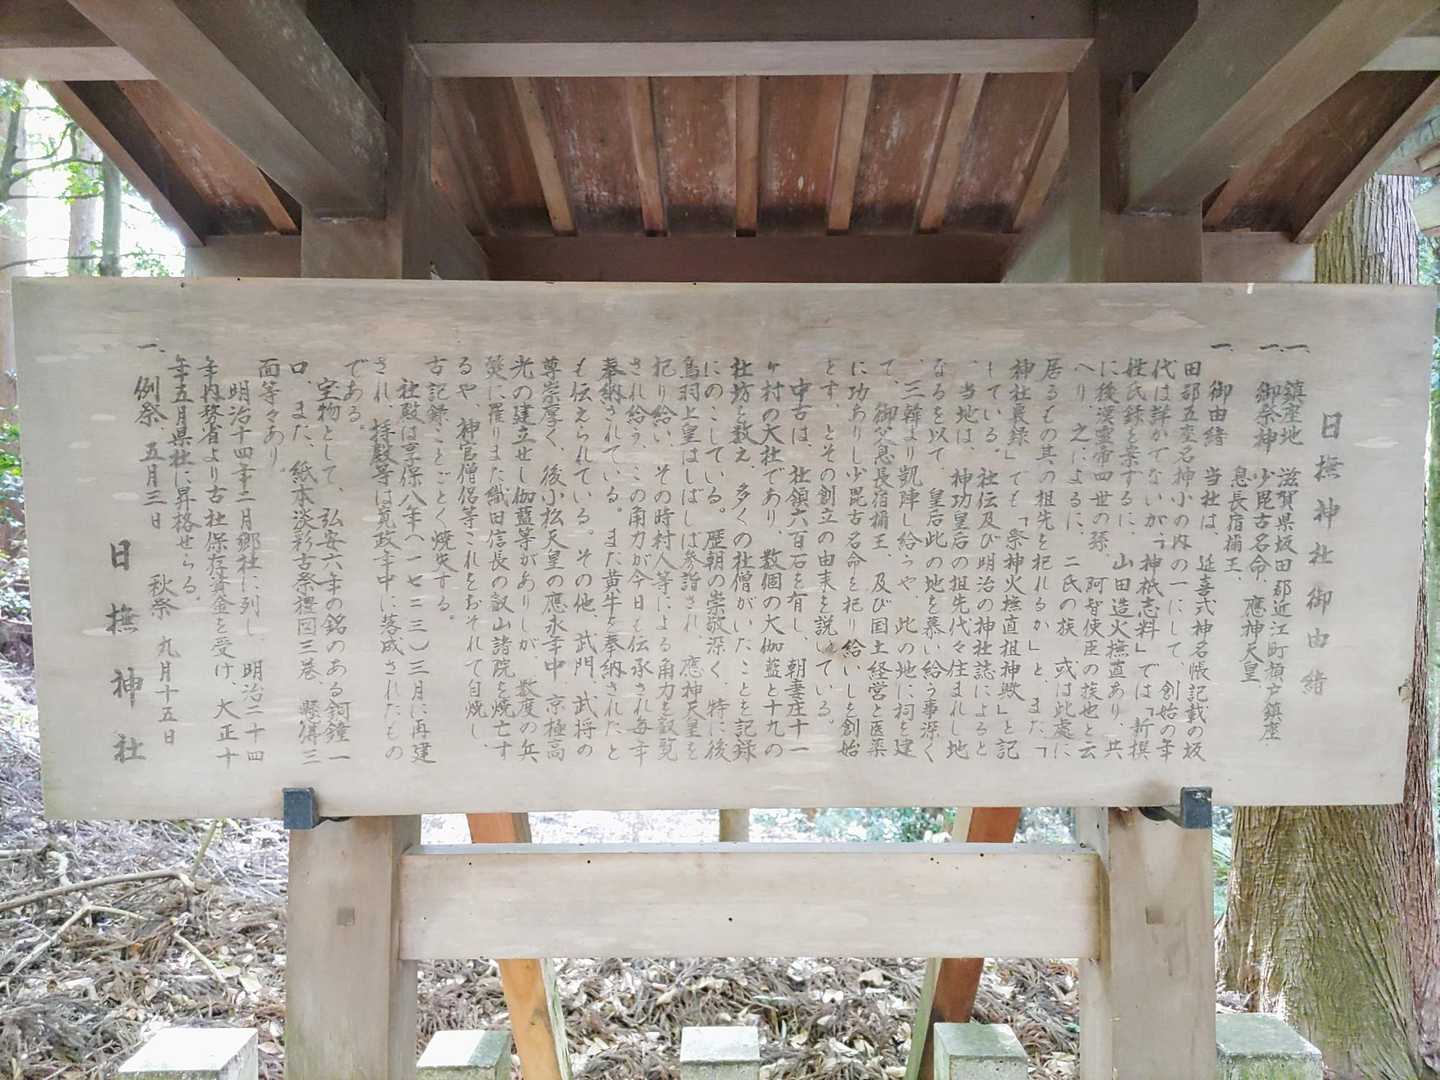 日撫神社御由緒
一、鎮座地　滋賀県坂田郡近江町顔戸鎮座
一、御祭神　少毘古名命、應神天皇
息長宿禰王、
一、御由緒　当社は、延喜式神名帳記載の坂
田郡五座名神小の内の一にして、創始の年
代は詳かでないが「神祇志料」では「新撰
姓氏録を案するに、山田造火撫直あり、共
に後漢靈帝四世の孫、阿智使臣の族也と云
へり、之によるに、二氏の族、或は此處に
居るもの其の祖先を祀れるか」と、また「
神社覈録」でも「祭神火撫直祖神歟」と記
している。社伝及び明治の神社誌によると
、当地は、神功皇后の祖先代々住まれし地
なるを以て、皇后此の地を慕い給う事深く
、三韓より凱陣し給つや、此の地に祠を建
て、御父息長宿禰王、及び国土経営と医薬
に功ありし少毘古名命を祀り給いしを創始
とす、とその創立の由来を説いている。
中古は、社領六百石を有し、朝妻庄十一
ヶ村の大社であり、数個の大伽藍と十九の
社坊を数え、多くの社僧がいたことを記録
にのこしている。歴朝の崇敬深く、特に後
鳥羽上皇はしばしば参詣され、應神天皇を
祀り給い、その時村人等による角力を叡覧
され給う、この角力が今日も伝承され毎年
奉納されている。また黄牛を奉納されたと
も伝えられている。その他、武門、武将の
尊崇厚く、後小松天皇の應永年中、京極高
光の建立せし伽藍等がありしが、数度の兵
燹に罹りまた織田信長の叡山諸院を焼亡す
るや、神官僧侶等これをおそれて自焼し、
古記録ことごとく焼失する。
社殿は享保八年（一七二三）三月に再建
され、拝殿等は寛政年中に落成されたもの
である。
宝物として、弘安六年の銘のある銅鐘一
口、また、紙本淡彩古祭禮図三巻、懸佛三
面等々あり。
明治十四年二月郷社に列し、明治二十四
年内務省より古社保存資金を受け、大正十
年五月県社に昇格せらる。
一、例祭　五月三日　秋祭　九月十五日
日撫神社